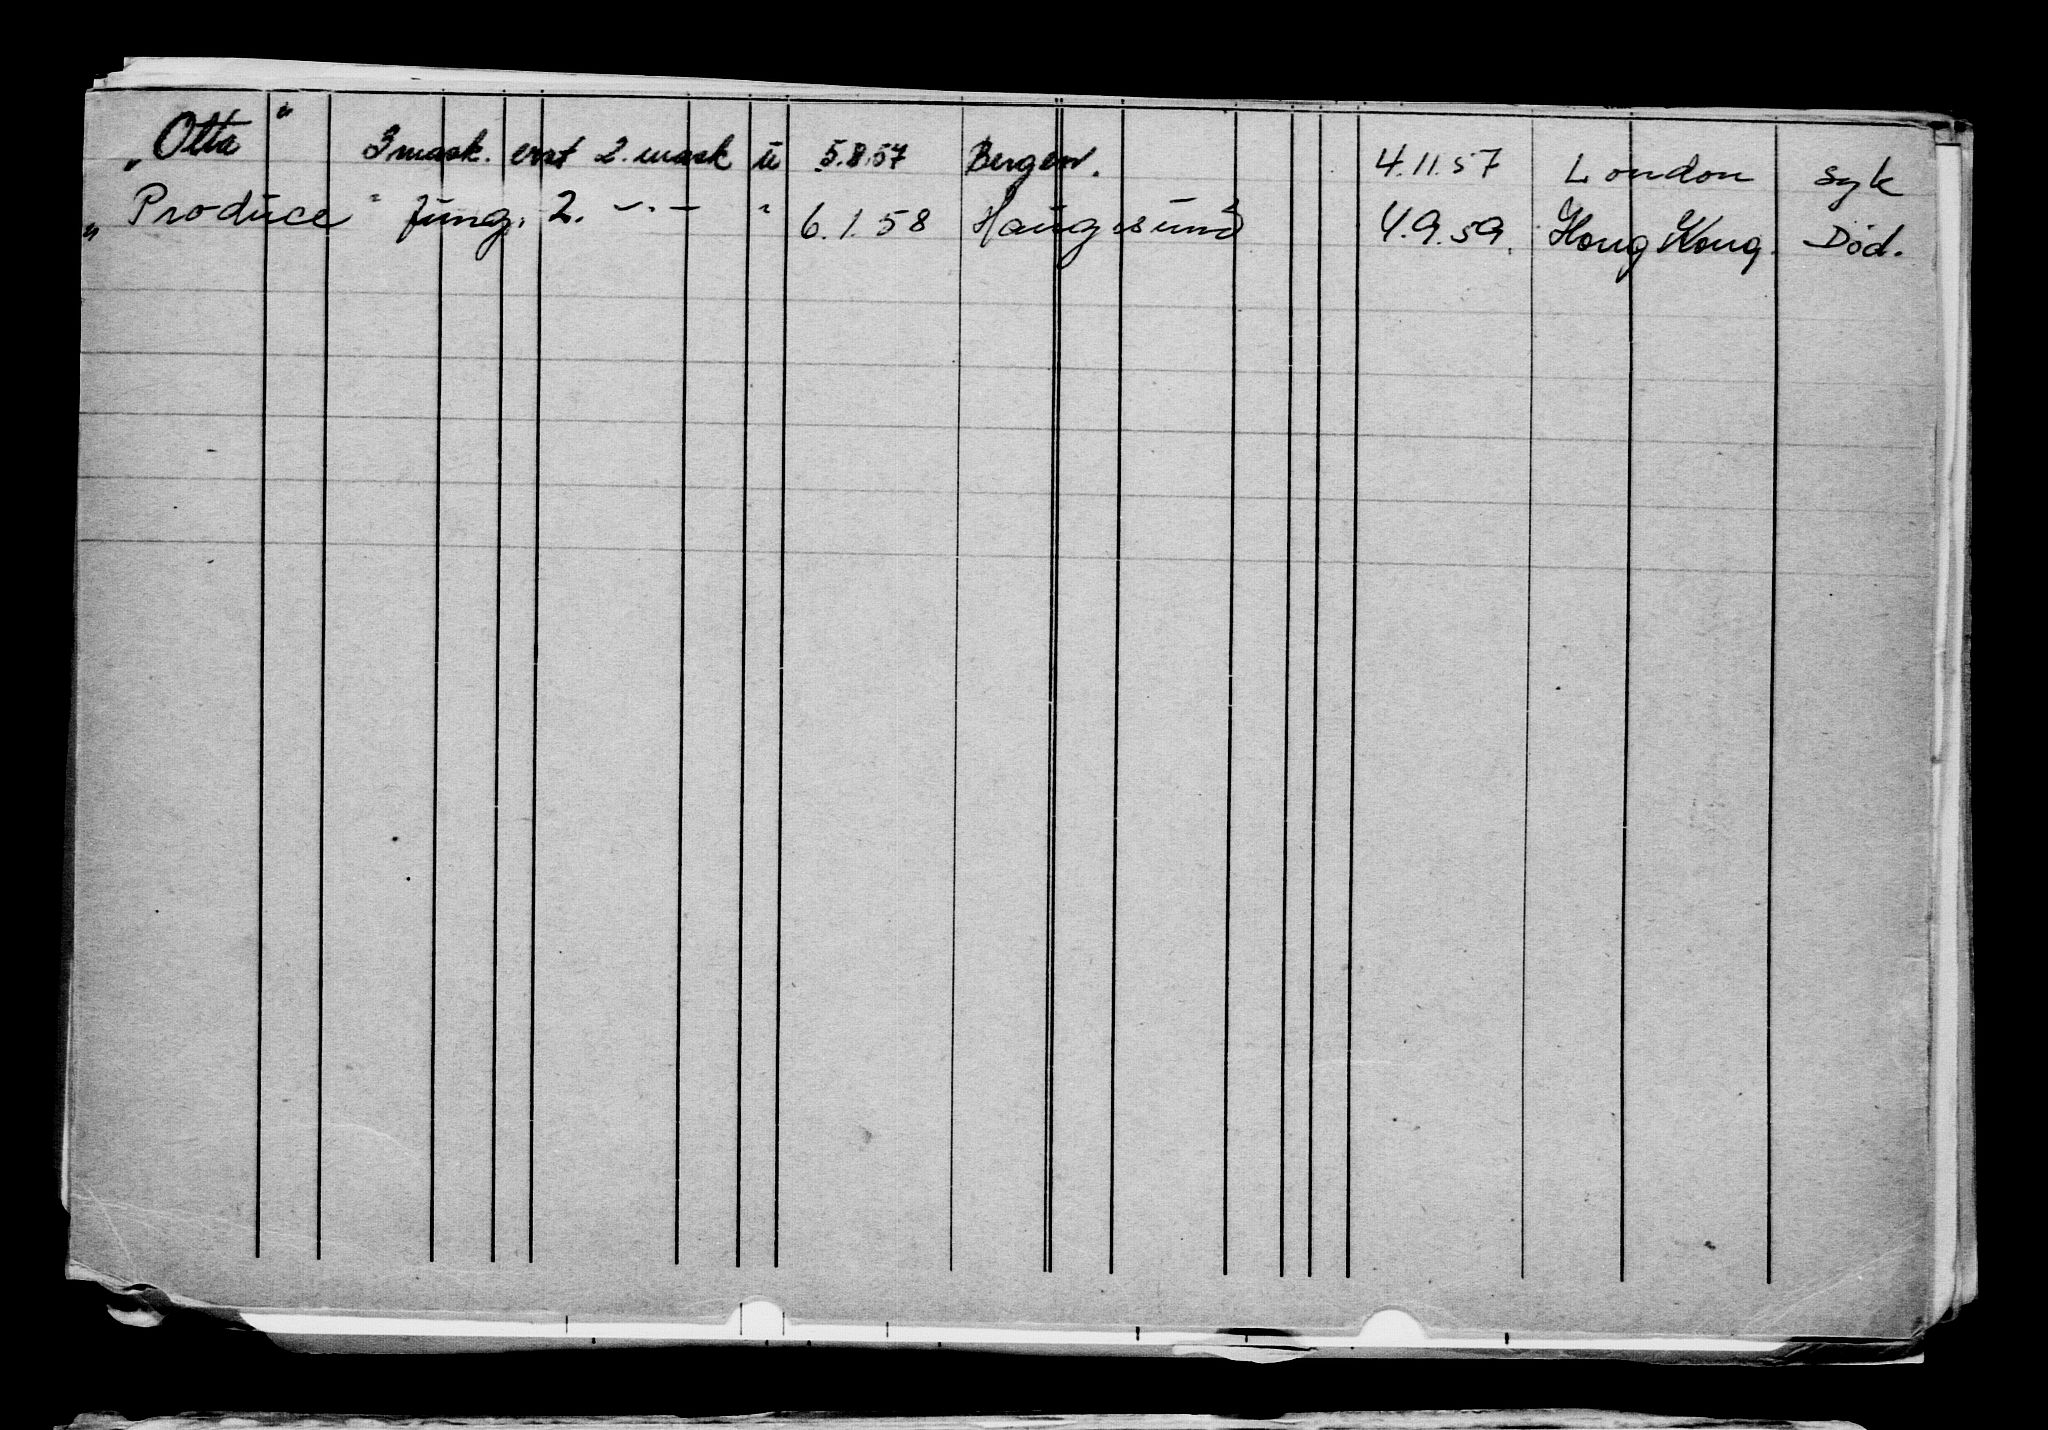 „Otta“ 3 mask. erst 2. mask u 5.8.57 Bergen. 4.11.57 London syk
„Produce“ fung. 2. -.- " 6.1.58 Haugesund 4.9.59. Hong Kong. Død.